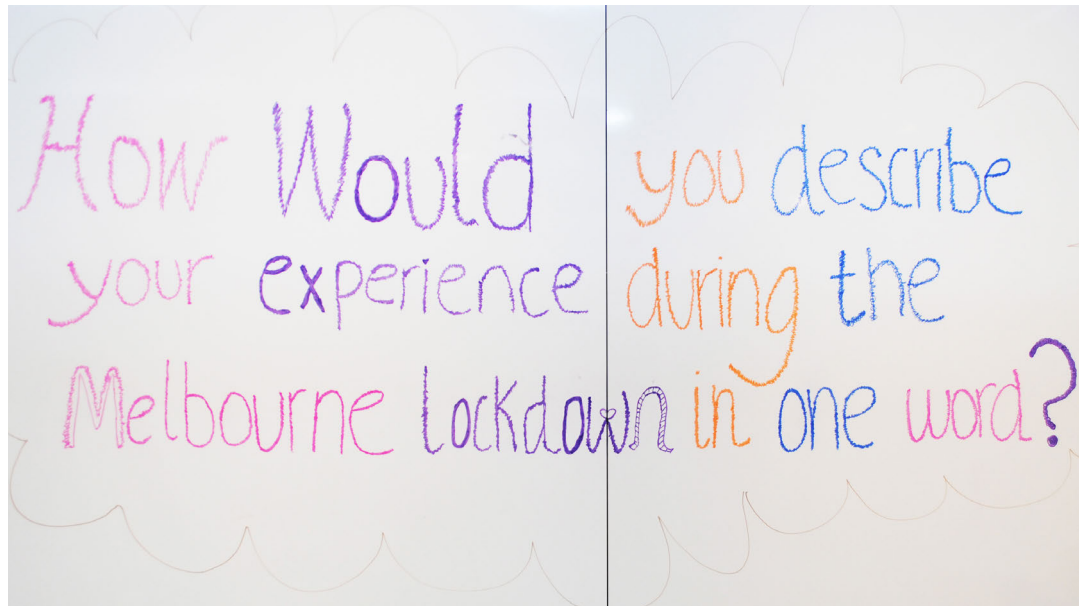 How Would you describe
your experience during the
Melbourne lockdown in one word?